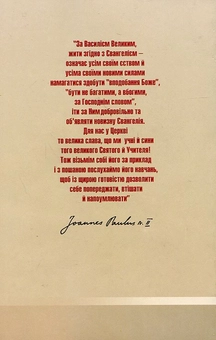 "За Василієм Великим,
жити згідно з Євангелієм –
означає усім своїм єством й
усіма своїми новими силами
намагатися здобути "вподобання Боже",
"бути не багатими, а вбогими,
за Господнім словом",
іти за Ним добровільно та
об'являти новизну Євангелія.
Для нас у Церкві
то велика слава, що ми учні й сини
того великого Святого й Учителя!
Тож візьмім собі його за приклад
і з пошаною послухаймо його навчань,
щоб із щирою готовістю дозволити
себе попереджати, втішати
й напоумлювати"
Joannes Paulus II